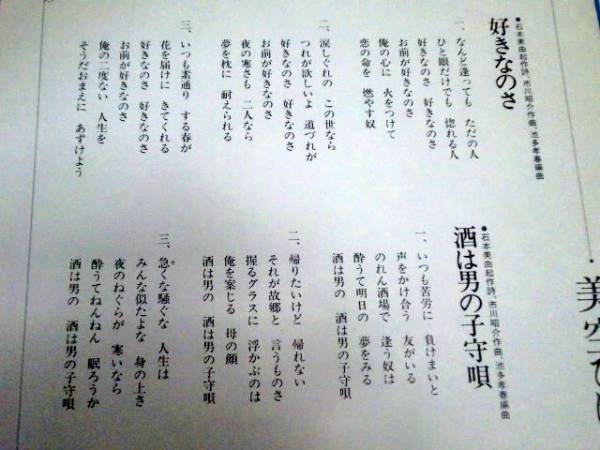 美空ひ
好きなのさ
●石本美由起作詩、市川昭介作曲、池多孝春編曲
一、なんど逢っても ただの人
ひと眼だけでも 惚れる人
好きなのさ 好きなのさ
お前が好きなのさ
俺の心に 火をつけて
恋の命を 燃やす奴
二、涙しぐれの この世なら
つれが欲しいよ 道づれが
好きなのさ 好きなのさ
お前が好きなのさ
夜の寒さも 二人なら
夢を枕に 耐えられる
三、いつも素通り する春が
花を届けに きてくれる
好きなのさ 好きなのさ
お前が好きなのさ
俺の二度ない 人生を
そうだおまえに あずけよう
酒は男の子守唄
●石本美由起作詩、市川昭介作曲、池多孝春編曲
一、いつも苦労に 負けまいと
声をかけ合う 友がいる
のれん酒場で 逢う奴は
酔うて明日の 夢をみる
酒は男の 酒は男の子守唄
二、帰りたいけど 帰れない
それが故郷と 言うものさ
握るグラスに 浮かぶのは
俺を案じる 母の顔
酒は男の 酒は男の子守唄
三、急くな騒ぐな 人生は
みんな似たよな 身の上さ
夜のねぐらが 寒いなら
酔うてねんねん 眠ろうか
酒は男の 酒は男の子守唄